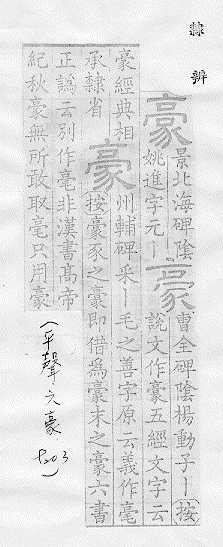 隸辨
豪
景北海碑陰
姚進字元丨
豪
曹全碑陰楊動子丨(按
說文作豪五經文字云
豪經典相
承隸省
豪
州輔碑采丨毛之蓴字原云義作毫
按豪豕之豪即借爲豪末之豪六書
正譌云別作毫非漢書髙帝
紀秋豪無所敢取毫只用豪
(平聲六豪
203)